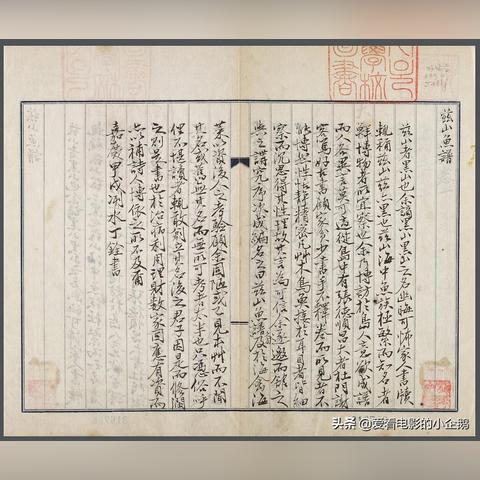 玆山魚譜
玆山者黑山也余謫黑山黑山之名幽晦可怖家人書牘
輒稱玆山玆亦黑也玆山海中魚族極繁而知名者
鮮博物者所宜察也余乃博訪於島人意欲成譜
而人人異言莫可適從島中有張德順昌大者杜門謝
客篤好古書顧家貧少書手不釋卷而所見者不
能博然性恬靜精密凡艸木鳥魚接於耳目者皆細
察而沉思得其性理故其言為可信余遂邀而館之
與之講究序次成編名之曰玆山魚譜旁及於海禽海
菜以資後人之考驗顧余固陋或已見本艸而不聞
其名或舊無其名而無所可考者太半也只憑俗呼
俚不堪讀者輒敢創立其名後之君子因是而修潤
之則是書也於治病利用理財數家固應有資而
亦以補詩人博依之所不及爾
嘉慶甲戌洌水丁銓書
玆山魚譜
头条 @爱看电影的小企鹅